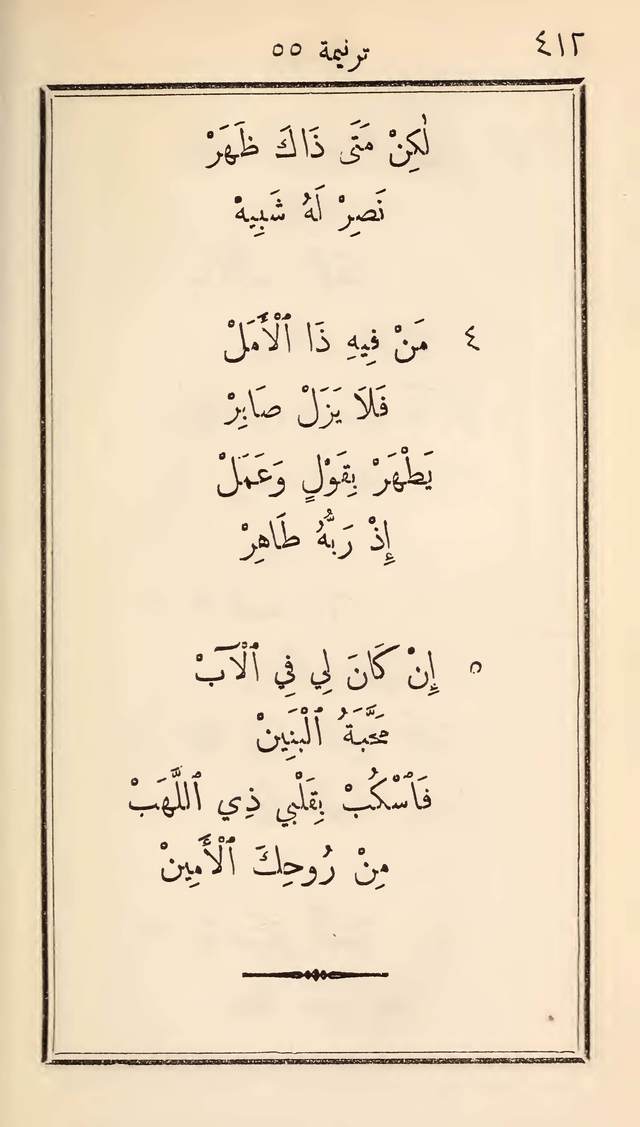 ٤١٢
ترنيمة ٥٥
لٰكِنْ مَتَى ذَاكَ ظَهَرْ
نَصِرْ لَهُ شَبِيهْ
٤ مَنْ فِيهِ ذَا ٱلْأَمَلْ
فَلَا يَزَلْ صَابِرْ
يَطْهَرْ بِقَوْلٍ وَعَمَلْ
إِذْ رَبُّهُ طَاهِرْ
٥ إِنْ كَانَ لِي فِي ٱلْآبْ
مَحَبَّةُ ٱلْبَنِينْ
فَٱسْكُبْ بِقَلْبِي ذِي ٱللَّهَبْ
مِنْ رُوحِكَ ٱلْأَمِينْ